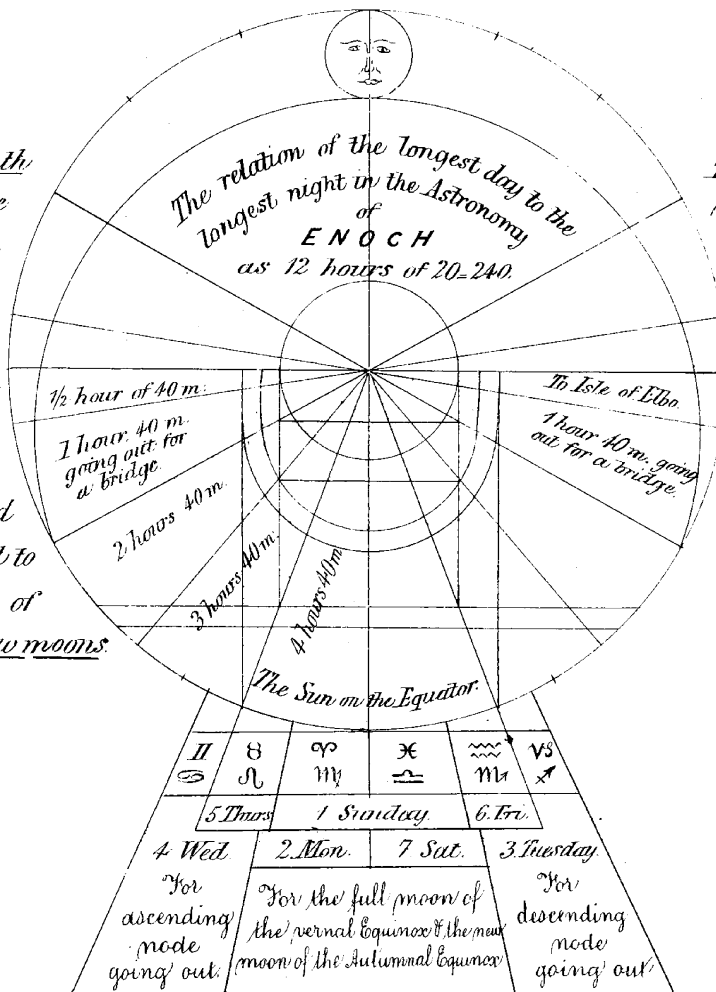 th
The relation of the longest day to the
longest night in the Astronomy
of
ENOCH
as 12 hours of 20=240.
1/2 hour of 40 m.
1 hour. 40 m.
going out for
a bridge.
2 hours 40 m.
3 hours 40 m.
4 hours 40 m
To Isle of Elbo.
1 hour 40 m. going
out for a bridge.
to
of
moons.
The Sun on the Equator.
♊ ♉ ♈ ♓ ♒ ♑
♋ ♌ ♍ ♎ ♏ ♐
5 Thurs 1 Sunday. 6. Fri.
4 Wed 2. Mon. 7 Sat. 3. Tuesday.
For
ascending
node
going out.
For the full moon of
the vernal Equinox & the new
moon of the Autumnal Equinox
For
descending
node
going out.